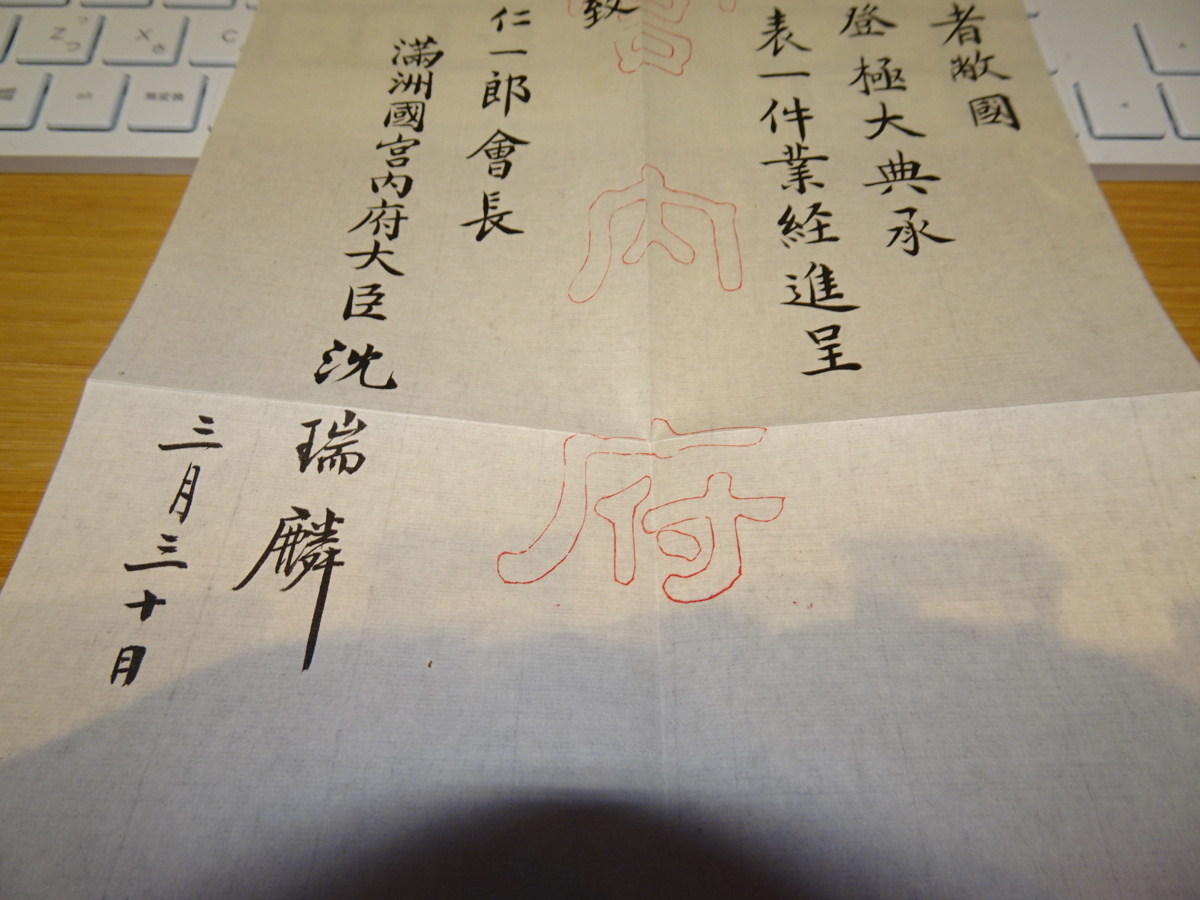 者敝國
登極大典承
表一件業経進呈
致
宮內府
仁一郎會長
滿洲國宮內府大臣沈瑞麟
三月三十日
Z
つ
X
さ
C